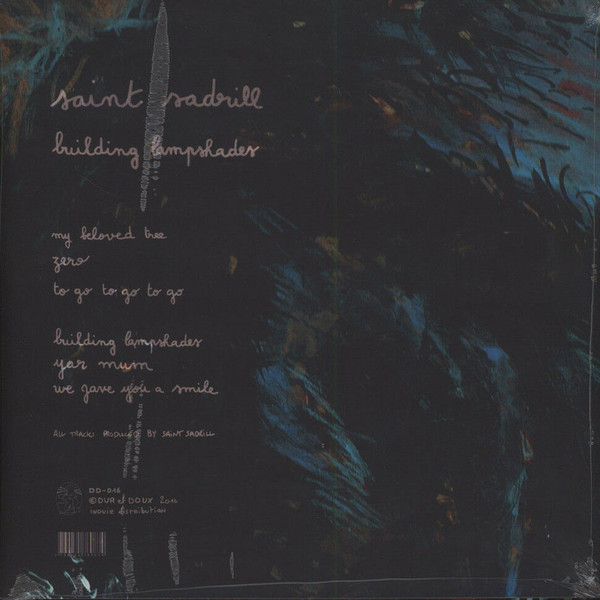 saint sadrill
building lampshades
my beloved tree
zero
to go to go to go
building lampshades
yar mum
we gave you a smile
ALL TRACKS PRODUCED BY SAINT SADRILL
DD-016
© DUR et DOUX 2016
inouïe distribution